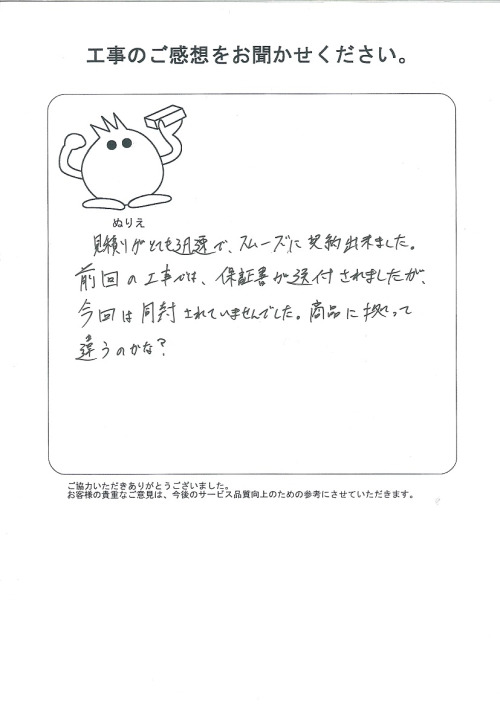 工事のご感想をお聞かせください。
ぬりえ
見積りがとても迅速で、スムーズに契約出来ました。
前回の工事では、保証書が送付されましたが、
今回は同封されていませんでした。商品に拠って
違うのかな？
ご協力いただきありがとうございました。
お客様の貴重なご意見は、今後のサービス品質向上のための参考にさせていただきます。